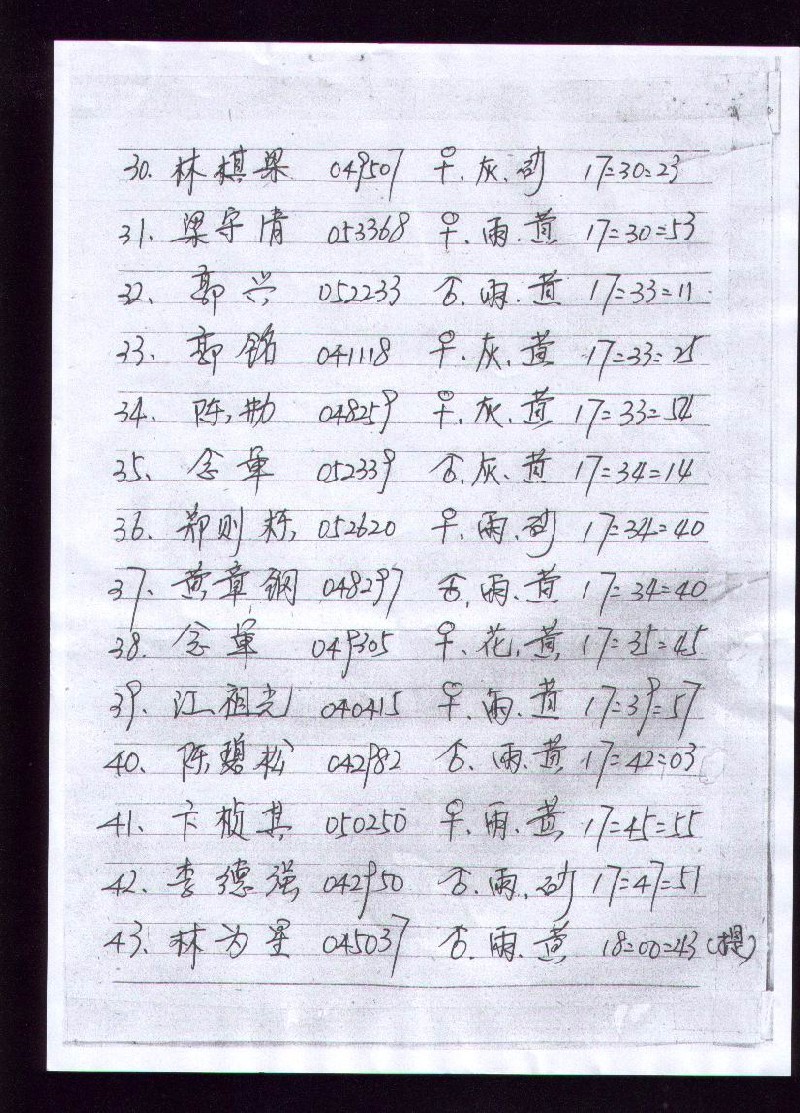 30. 林棋果 049507 ♀. 灰. 砂 17=30=23
31. 梁守清 053368 ♀. 雨. 黄 17=30=53
32. 郭兴 052233 ♂. 雨. 黄 17=33=11
33. 郭铭 041118 ♀. 灰. 黄 17=33=25
34. 陈勋 048259 ♀. 灰. 黄 17=33=54
35. 念単 052339 ♂. 灰. 黄 17=34=14
36. 郑则栋 052620 ♀. 雨. 砂 17=34=40
37. 黄章钢 048297 ♂. 雨. 黄 17=34=40
38. 念単 049305 ♀. 花. 黄 17=35=45
39. 江祖光 040415 ♀. 雨. 黄 17=39=57
40. 陈碧松 042982 ♂. 雨. 黄 17=42=03
41. 卞桢其 050250 ♀. 雨. 黄 17=45=55
42. 李德强 042950 ♂. 雨. 砂 17=47=51
43. 林为星 045037 ♂. 雨. 黄 18=00=43 (提)